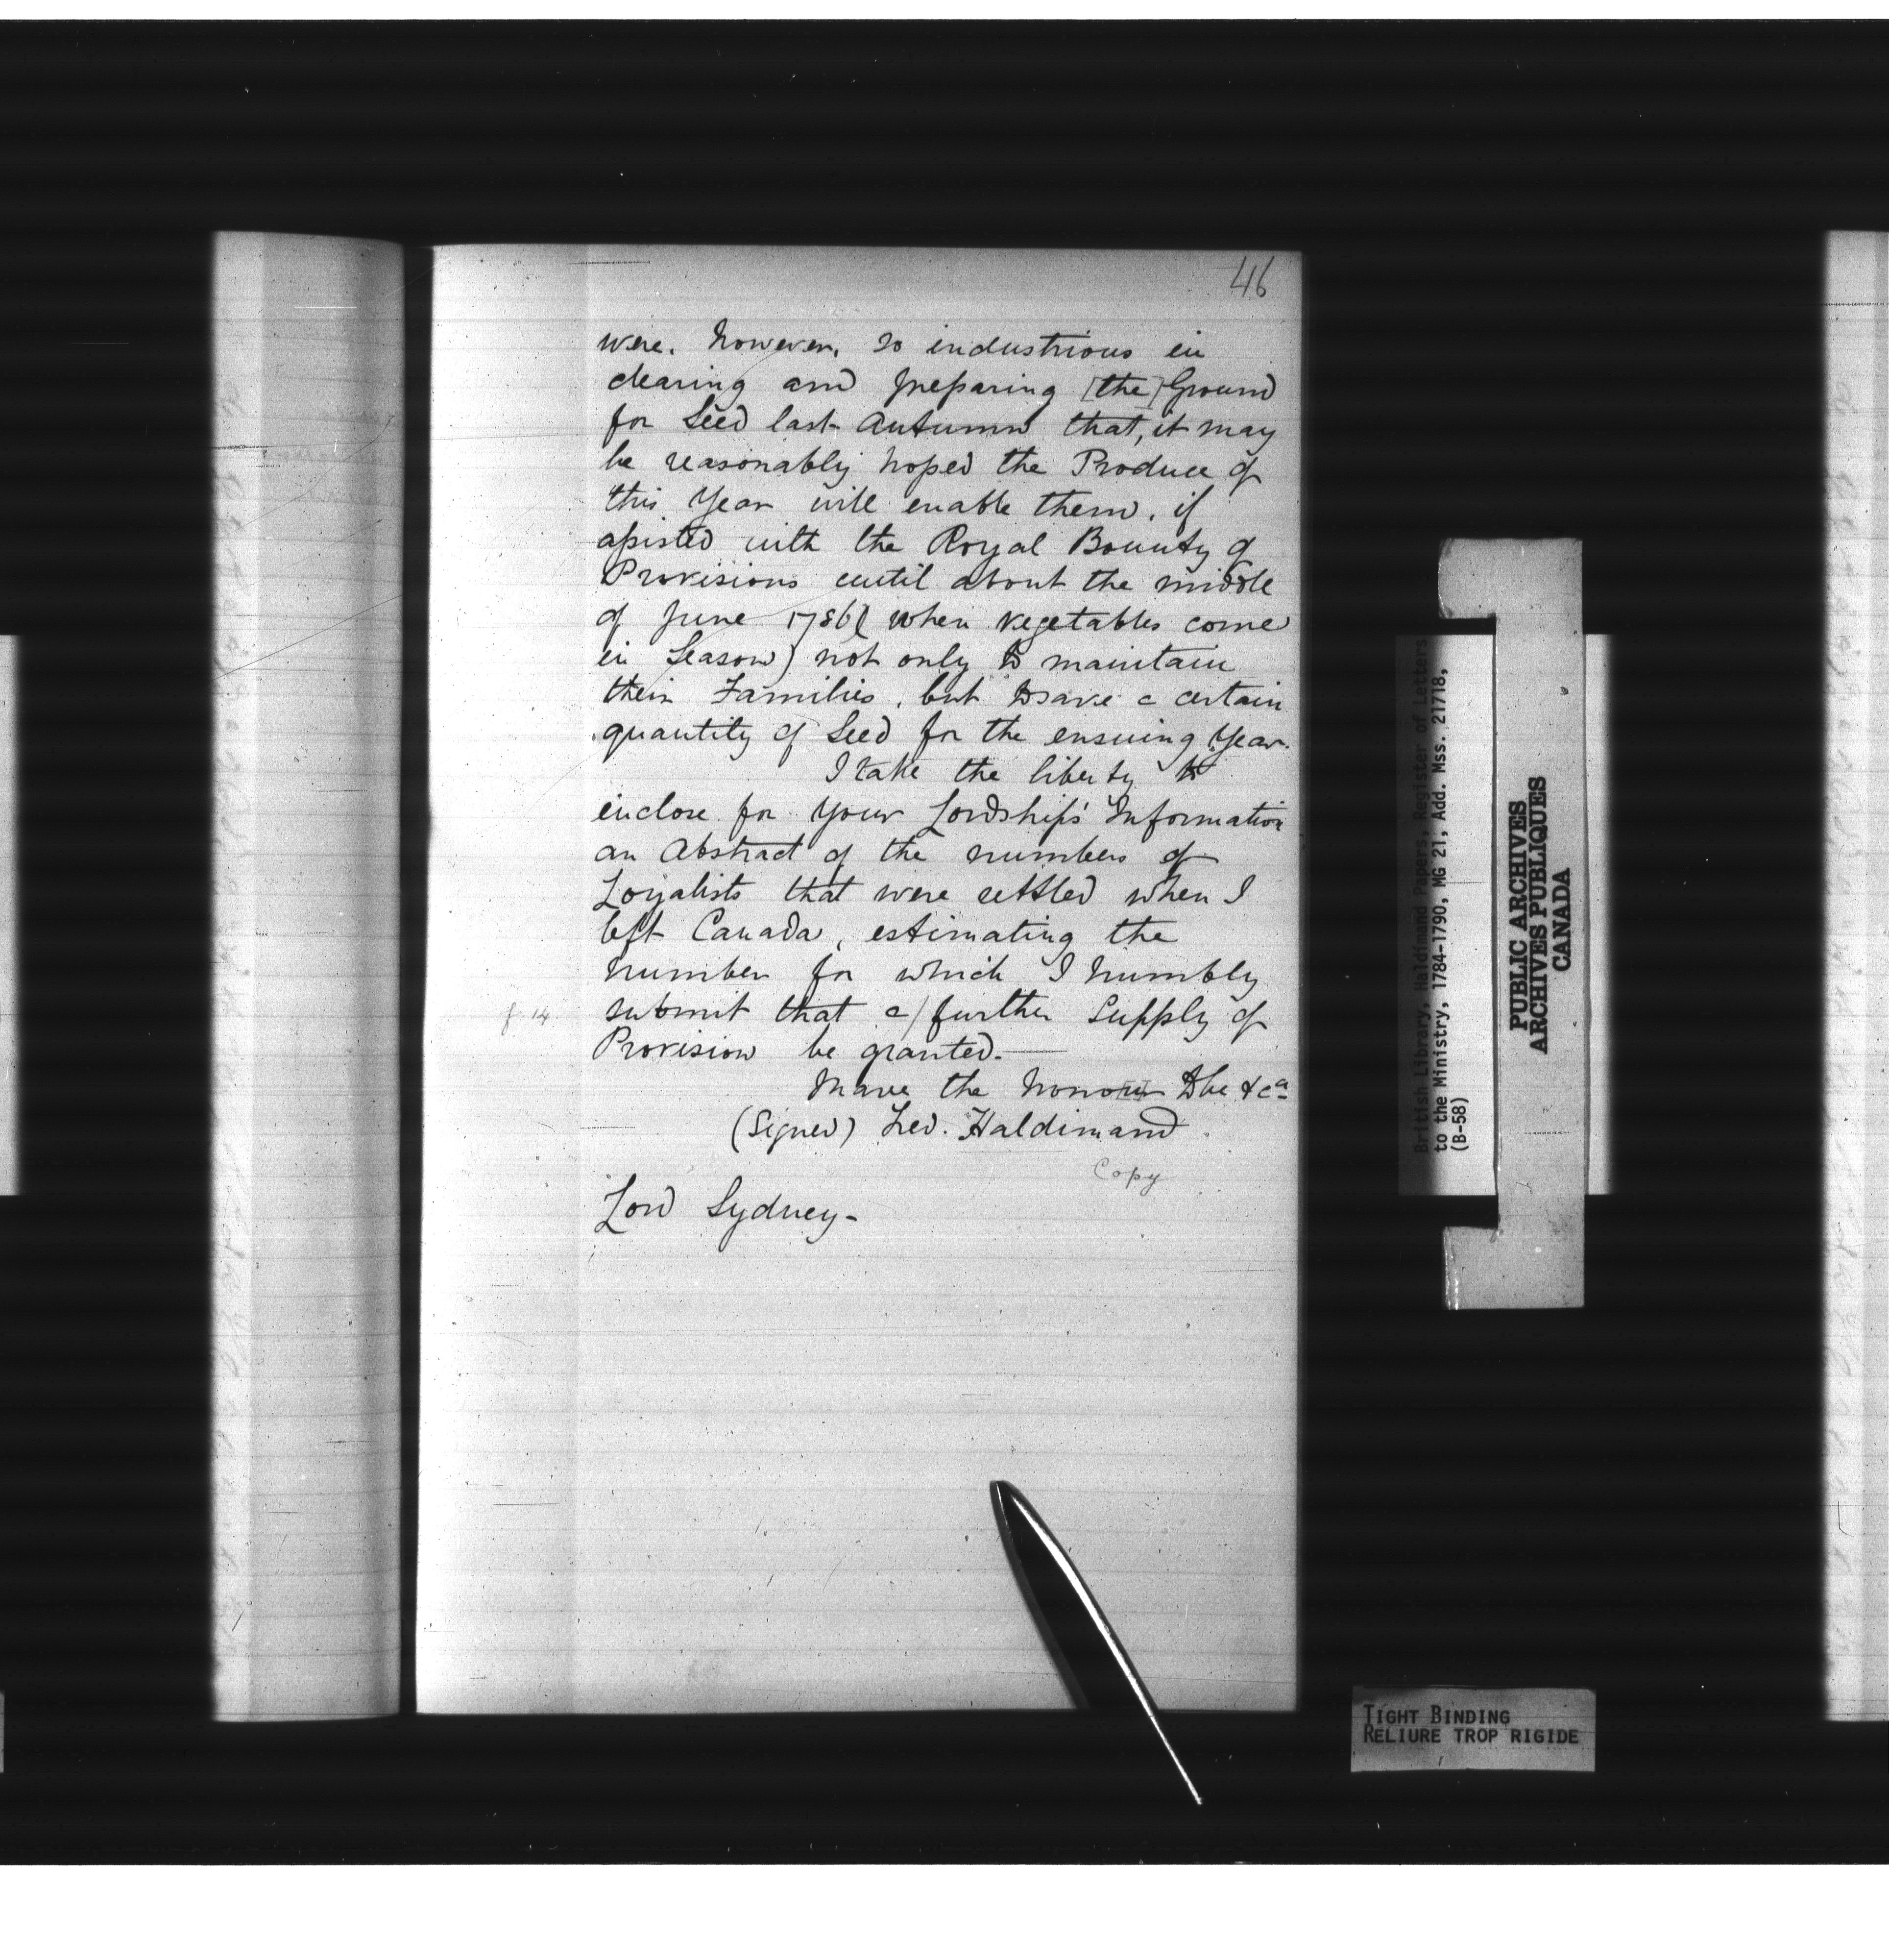 46
were, however, so industrious in
clearing and preparing [the] Ground
for Seed last Autumn that, it may
be reasonably hoped the Produce of
this Year will enable them, if
assisted with the Royal Bounty of
Provisions until about the middle
of June 1786 (when vegetables come
in Season) not only to maintain
their Families, but to save a certain
quantity of Seed for the ensuing Year.
I take the liberty to
enclose for Your Lordship's Information
an Abstract of the numbers of
Loyalists that were settled when I
left Canada, estimating the
number for which I humbly
f. 14. submit that a / further Supply of
Provision be granted.—
I have the honour to be &ca
(Signed) Fred. Haldimand.
Copy
Lord Sydney-
British Library, Haldimand Papers, Register of Letters
to the Ministry, 1784-1790, MG 21, Add. Mss. 21718,
(B-58)
PUBLIC ARCHIVES
ARCHIVES PUBLIQUES
CANADA
TIGHT BINDING
RELIURE TROP RIGIDE